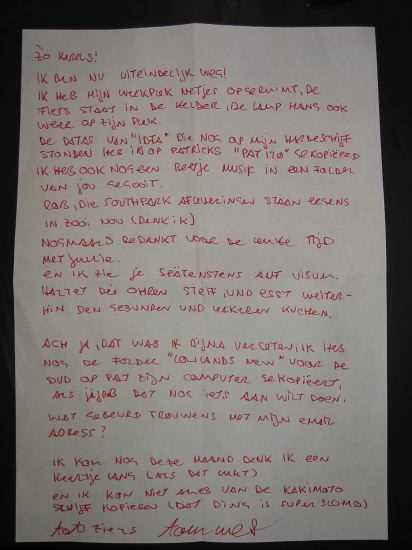 Zo kerels!
Ik ben nu uiteindelijk weg!
Ik heb mijn werkplek netjes opgeruimt, de
fiets staat in de kelder, de lamp hang ook
weer op zijn plek.
De datas van "IDFA" die nog op mijn hardeschijf
stonden heb ik op Patricks "Pat 170" gekopiëerd
Ik heb ook nog een beetje musik in een folder
van jou gegooit.
Rob, die Southpark afleveringen staan ergens
in zooi nou (denk ik)
Nogmaals bedankt voor de leuke tijd
met jullie.
En ik zie je spätenstens auf Visum.
Haltet die Ohren steif, und esst weiter-
hin den gesunden und leckeren Kuchen.
Ach je, dat was ik bijna vergeten, ik heb
nog de folder "Lowlands new" voor de
DVD op Pat zijn computer gekopiëert,
als je dat nog iets aan wilt doen.
Wat gebeurd trouwens met mijn email
adress?
Ik kom nog deze maand denk ik een
keertje lang (als dat lukt)
en ik kon niet alles van de Kakimoto
schijf kopieren (dat ding is super slomo)
Tot ziens